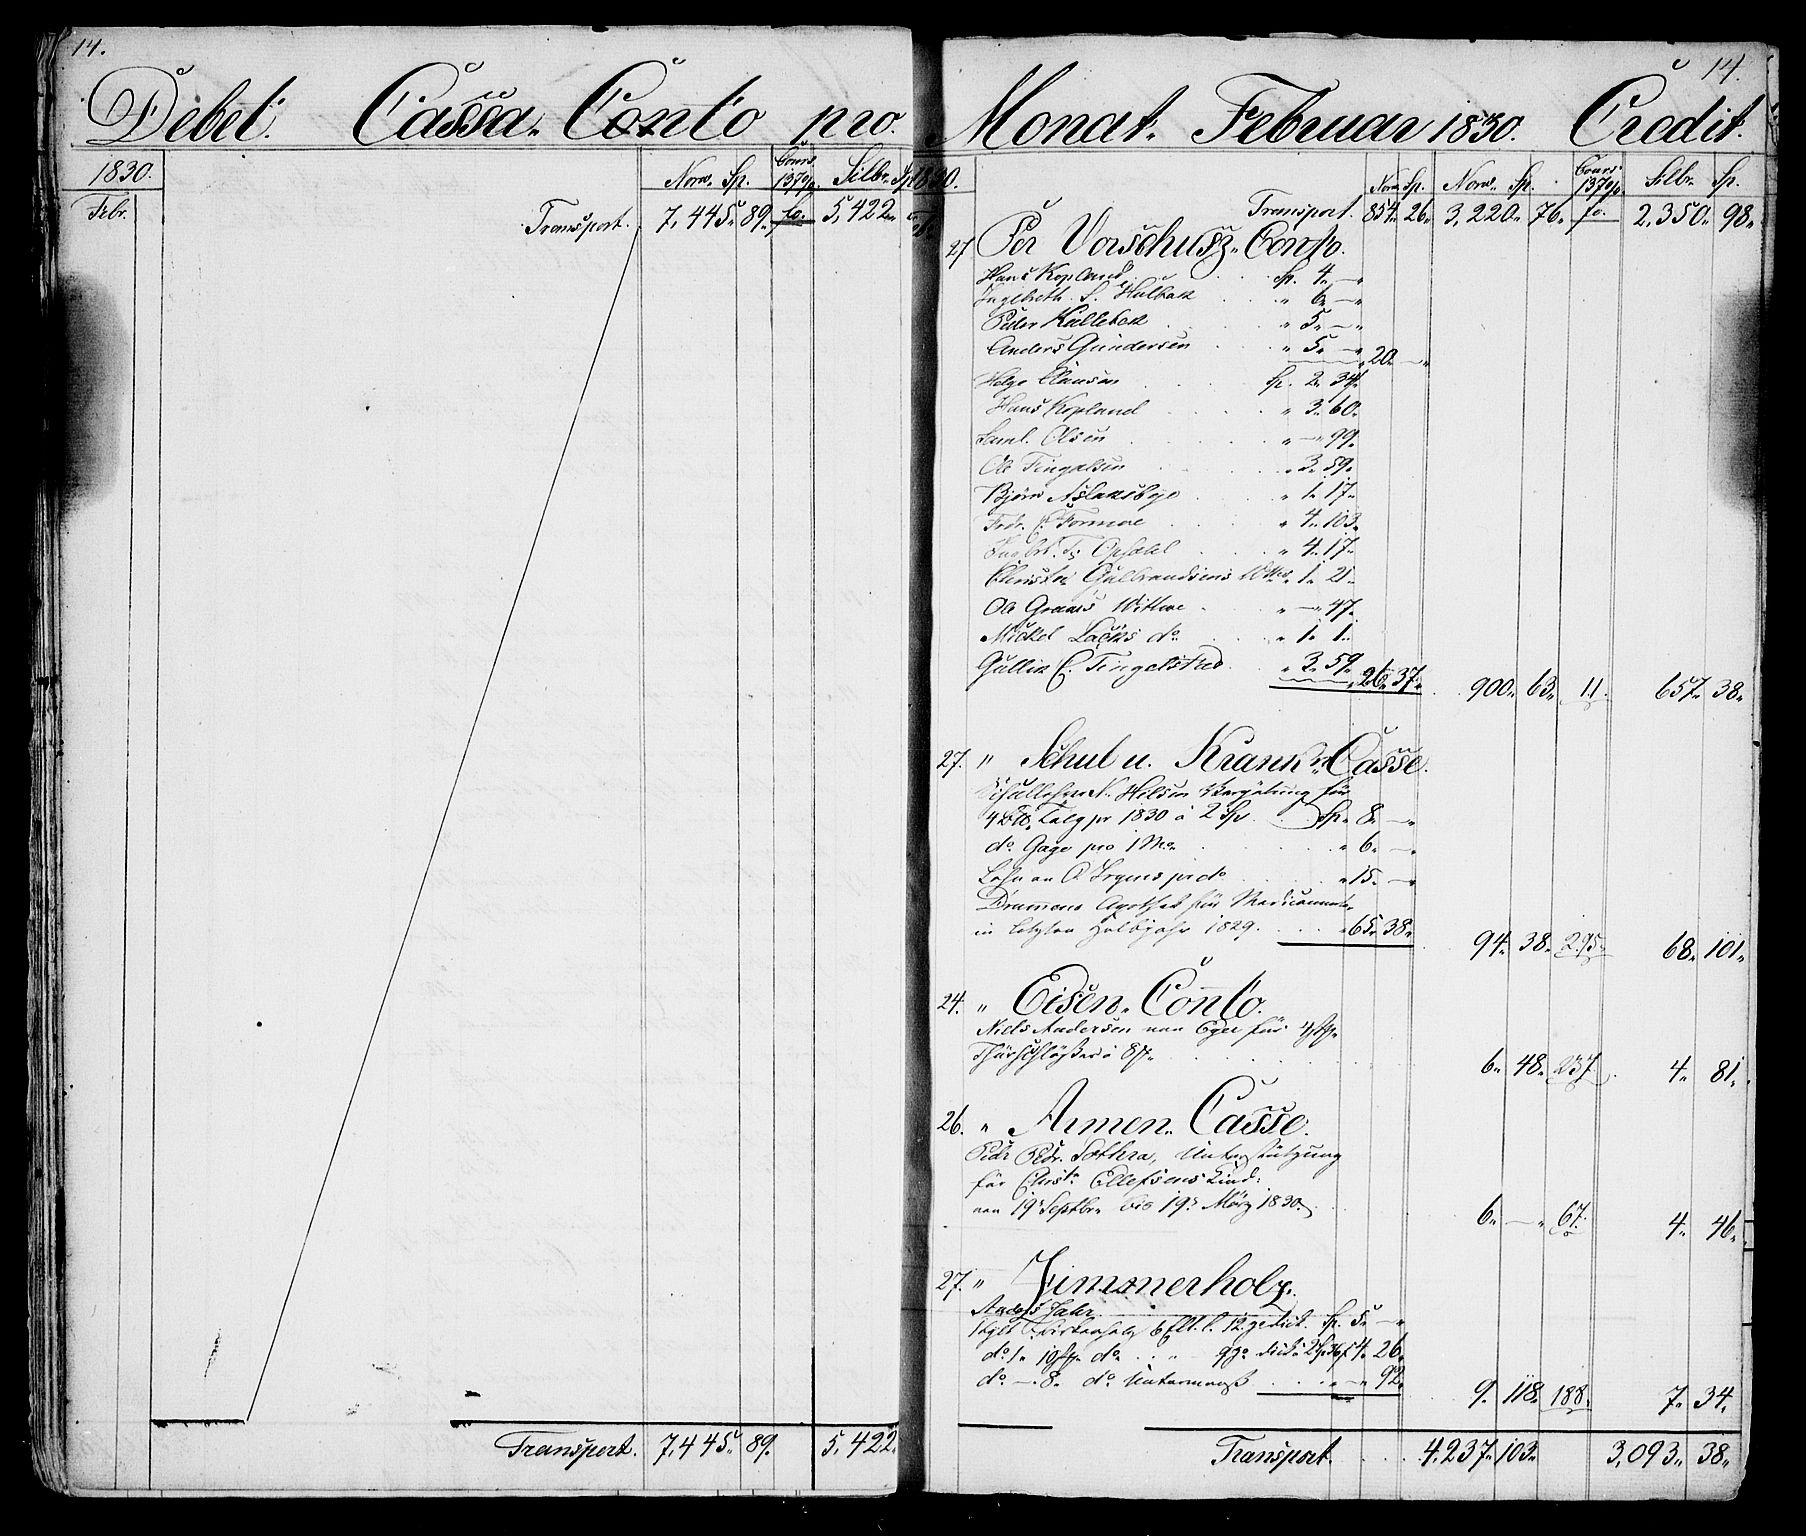 14.
Debet. Cassa Conto pro.
1830. Norw. Sp. Cours 137 0/0. Silbr. Sp.
Febr. Transport. 7,445 89. fo. 5,422
Transport. 7,445 89. 5,422
14.
Monat. Februar 1830. Credit.
1830. Norw. Sp. Norw. Sp. Cours 137 0/0 Silbr. Sp.
Transport. 854 26 3,220 76 fo. 2,350 98
27 Per Vorschusz Conto.
Hans Kopland Sp. 4 —
Ingebreth S. Hulbak " 6 —
Peder Kullebak " 5 —
Anders Gundersen " 5 — 20 —
Helge Clausen Sp. 2 34
Hans Kopland " 3 60
Saml. Olsen " — 99
Ole Tingelsen " 3 59
Björn Aslaksbye " 1 17
Fredr. C. Formoe " 4 103
Ingbr. T. Opsahl " 4 17
Christn Gulbrandsens Wittwe " 1 21
Ole Graaes Wittwe " — 47
Mickel Lacks do " 1 1
Gullik C. Tingelstad " 3 59 26 37 900 63 11 657 38
27. " Schul u. Kranken Casse.
Schullehrer N. Nilsen Vergütung für
4 Talg pr 1830 a 2 Sp Sp 8 —
do Gage pro 1 Mo " 6 —
Lohn an O Irgens pr do " 15 —
Drammens Apothek für Medicamente
in letzten Halbjahr 1829. " 65 38 94 38 295 68 101
24. " Eisen Conto.
Niels Andersen von Eger für
Thürschlößer a 8 6 48 237 4 81
26. " Armen Casse.
Pedr Sothra, Unterstützung
für Christn Ellefsens Kind
von 19r Septbr bis 19r März 1830. 6 — 67 4 46
27. " Zimmerholz.
Anders Jahr
6 Ell. l. 12 Sp. 5 —
do 1 10 do 4 26
do — 8 do Untermaaß — 92 9 118 188 7 34
Transport. 4,237 103 3,093 38